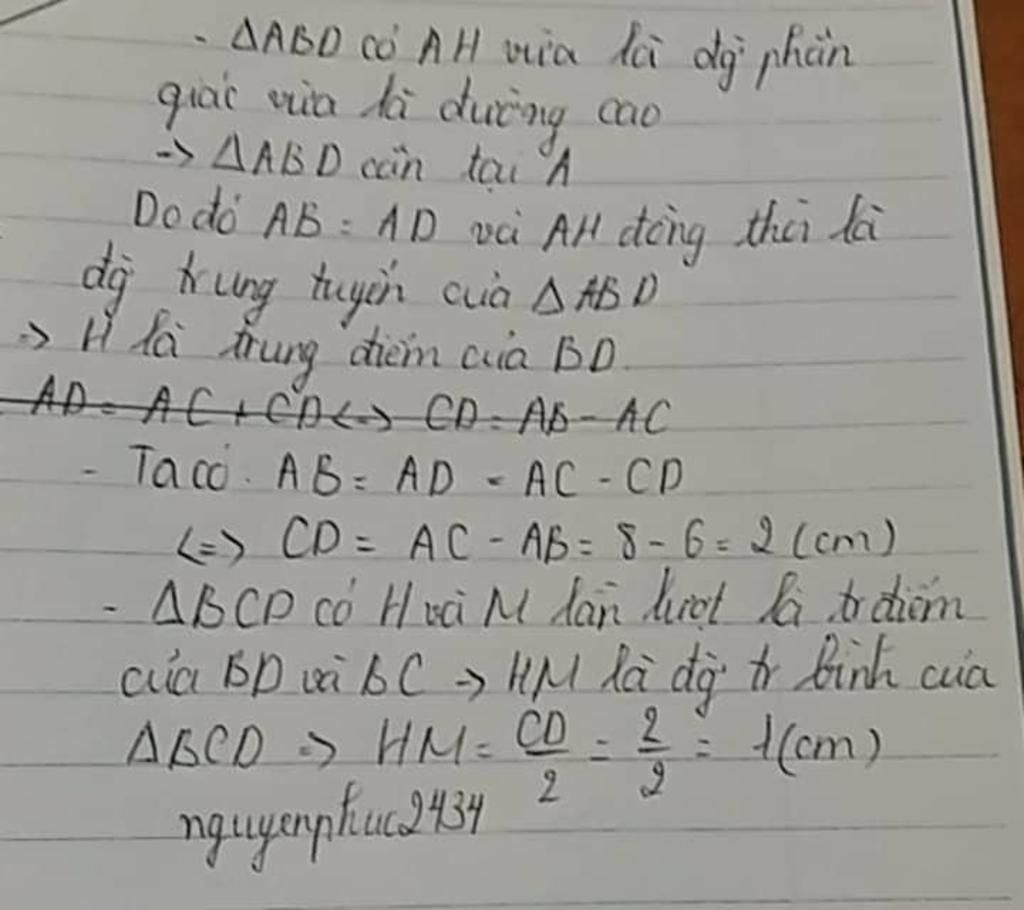 - ΔABD có AH vừa là đg phân
giác vừa là đường cao
-> ΔABD cân tại A
Do đó AB = AD và AH đồng thời là
đg trung tuyến của ΔABD
=> H là trung điểm của BD.
AD = AC + CD <=> CD = AB - AC
- Ta có. AB = AD = AC - CD
<=> CD = AC - AB = 8 - 6 = 2 (cm)
- ΔBCD có H và M lần lượt là tr điểm
của BD và BC -> HM là đg tr bình của
ΔBCD => HM = CD/2 = 2/2 = 1(cm)
nguyenphuc2434